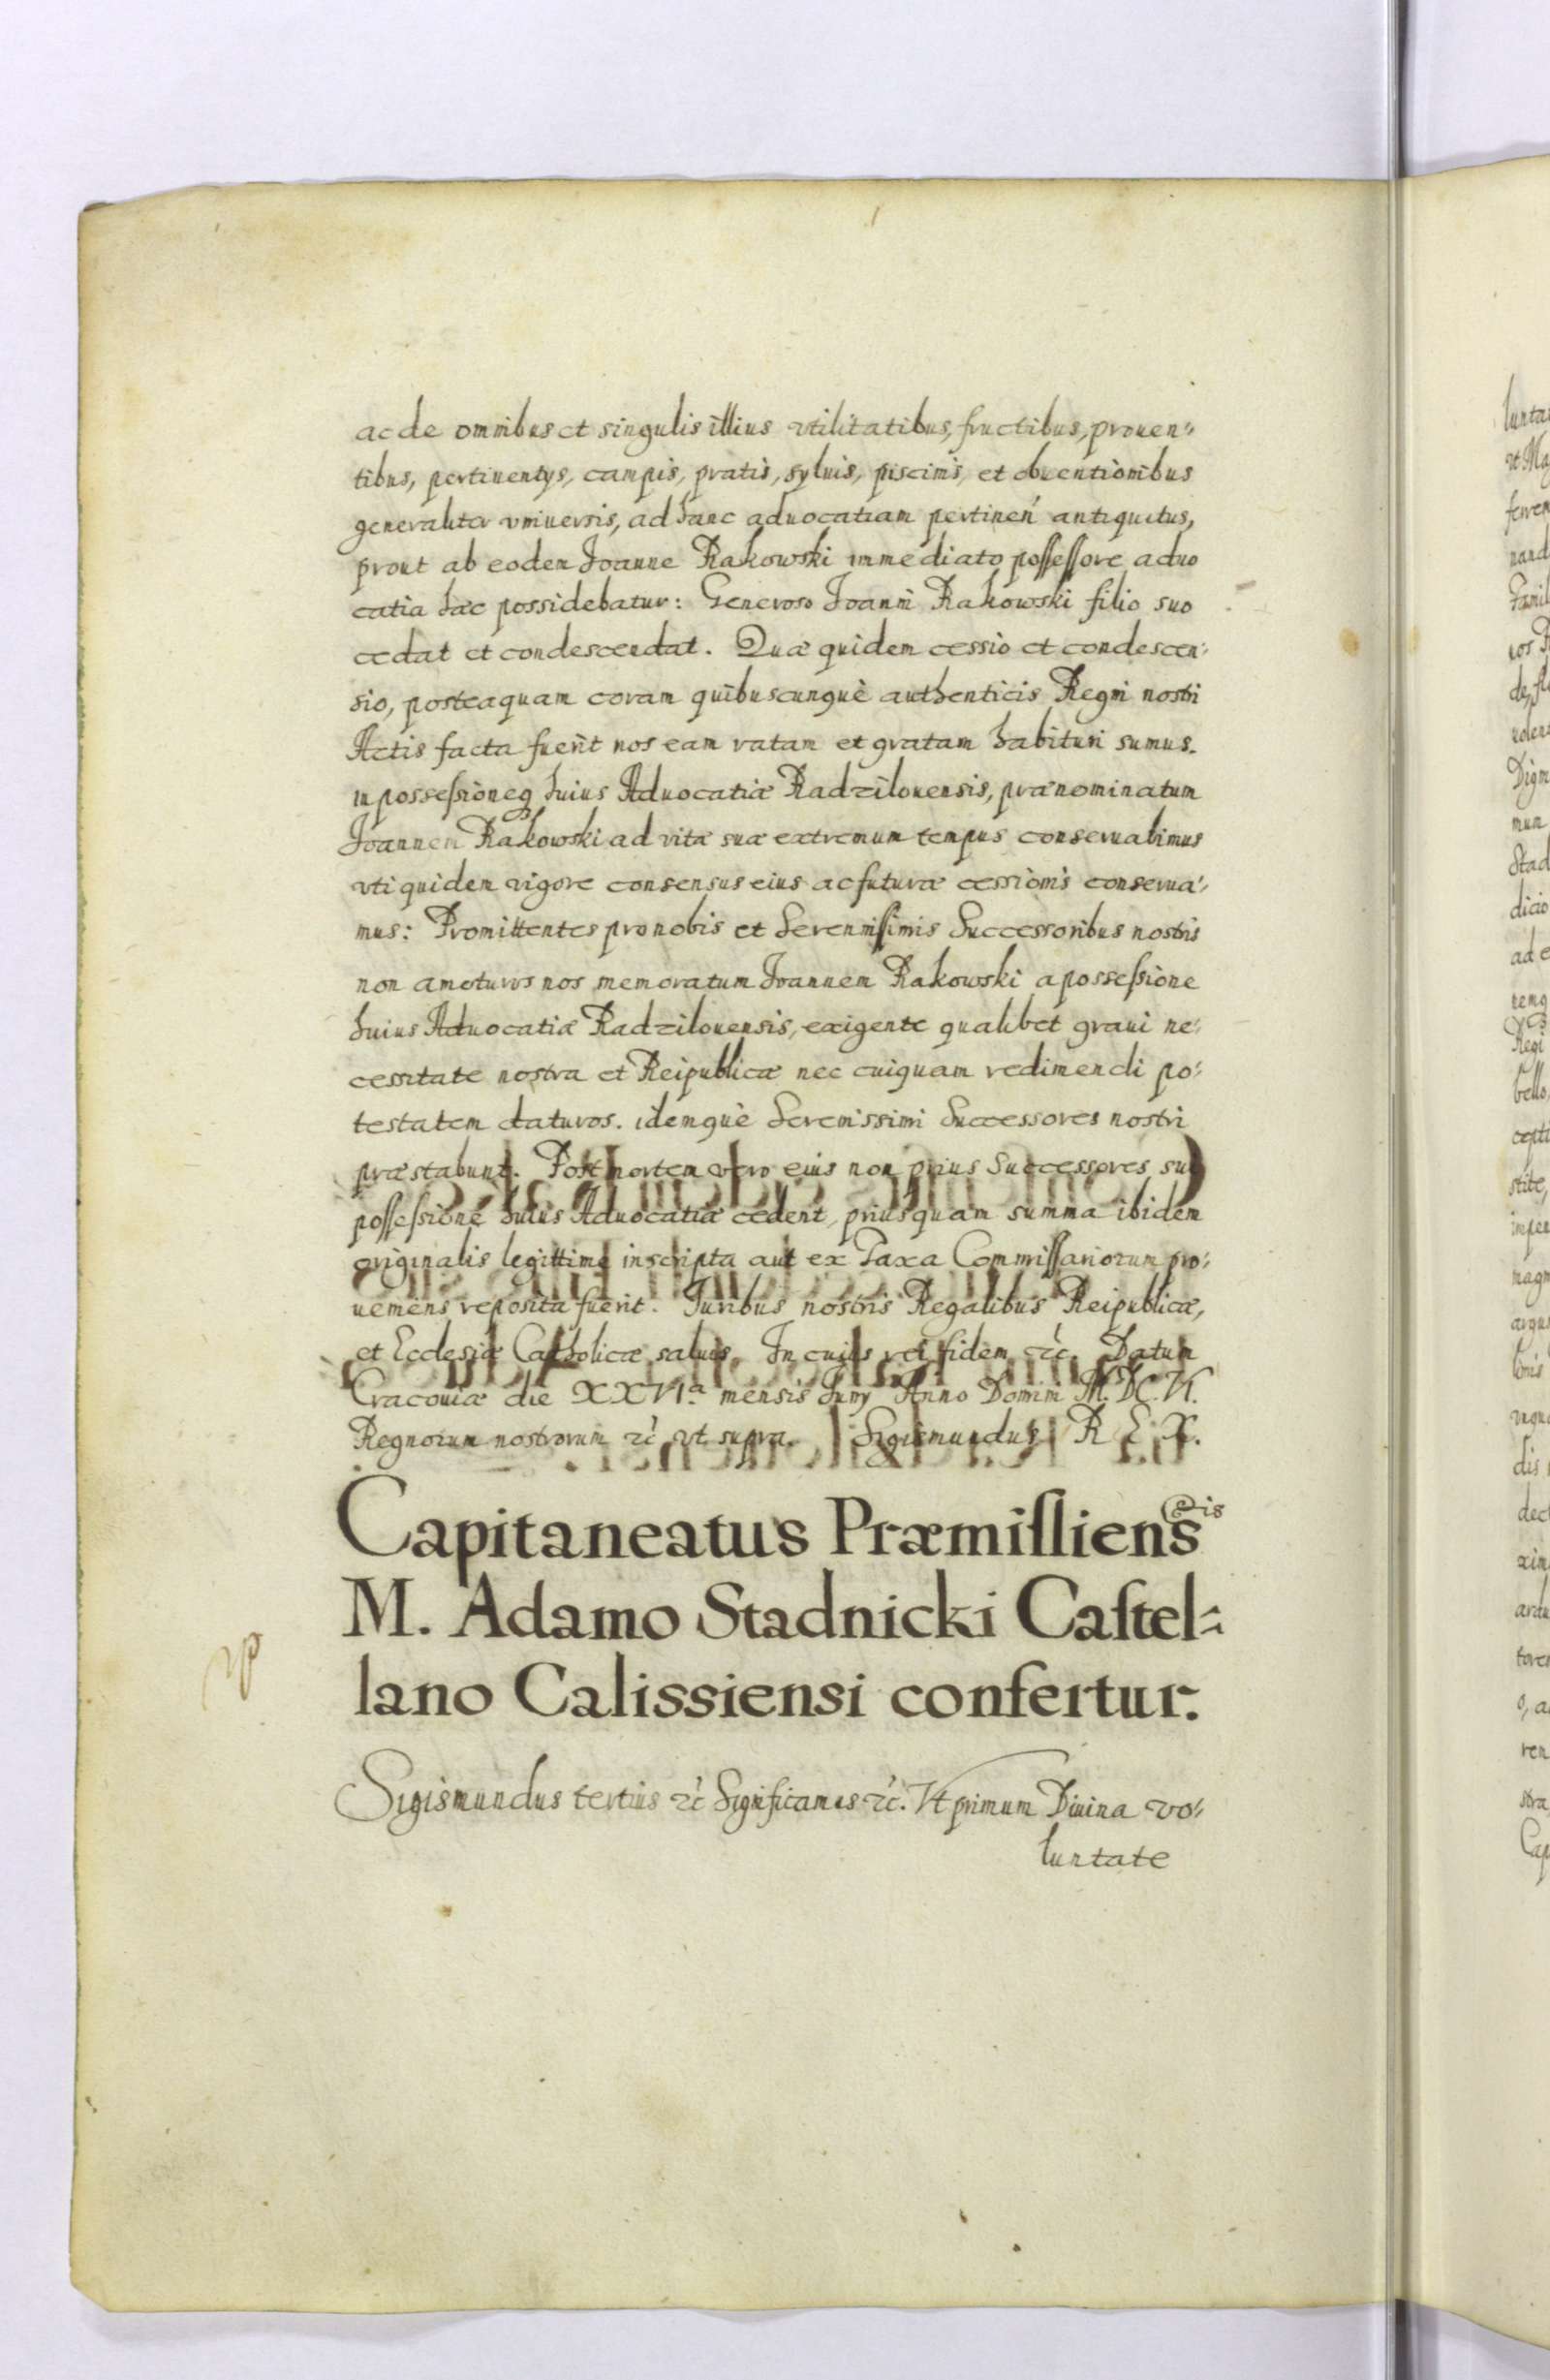 ac de omnibus et singulis illius vtilitatibus, fructibus, prouen-
tibus, pertinentÿs, campis, pratis, syluis, piscinis, et obuentionibus
generaliter vniuersis, ad hanc aduocatiam pertinen antiquitus,
prout ab eodem Joanne Rakowski immediato possessore aduo
catia hæc possidebatur: Generoso Joanni Rakowski filio suo
cedat et condescendat. Quæ quidem cessio et condescen-
sio, posteaquam coram quibuscunquè authenticis Regni nostri
Actis facta fuerit nos eam ratam et gratam habituri sumus.
in possessioneq huius Aduocatiæ Radzilouensis, prænominatum
Joannem Rakowski ad vitæ suæ extremum tempus conseruabimus
vti quidem vigore consensus eius ac futuræ cessionis conserua-
mus: Promittentes pro nobis et Serenissimis Successoribus nostris
non amoturos nos memoratum Joannem Rakowski a possessione
huius Aduocatiæ Radzilouensis, exigente qualibet graui ne-
cessitate nostra et Reipublicæ nec cuiquam redimendi po-
testatem daturos. idemquè Serenissimi Successores nostri
præstabunt. Post mortem vero eius non prius Successores sui
possessione huius Aduocatiæ cedent, priusquam summa ibidem
originalis legittime inscripta aut ex Taxa Commissariorum pro-
ueniens reposita fuerit. Juribus nostris Regalibus Reipublicæ,
et Ecclesiæ Catholicæ saluis. In cuius rei fidem etc. Datum
Cracouiæ die XXVI.a mensis Junÿ Anno Domini M.DC.VI.
Regnorum nostrorum etc vt supra. Sigismundus REX.
Capitaneatus Præmislien̄sis
M. Adamo Stadnicki Castel-
lano Calissiensi confertur.
Sigismundus tertius etc Significamus etc. Vt primum Diuina vo-
luntate